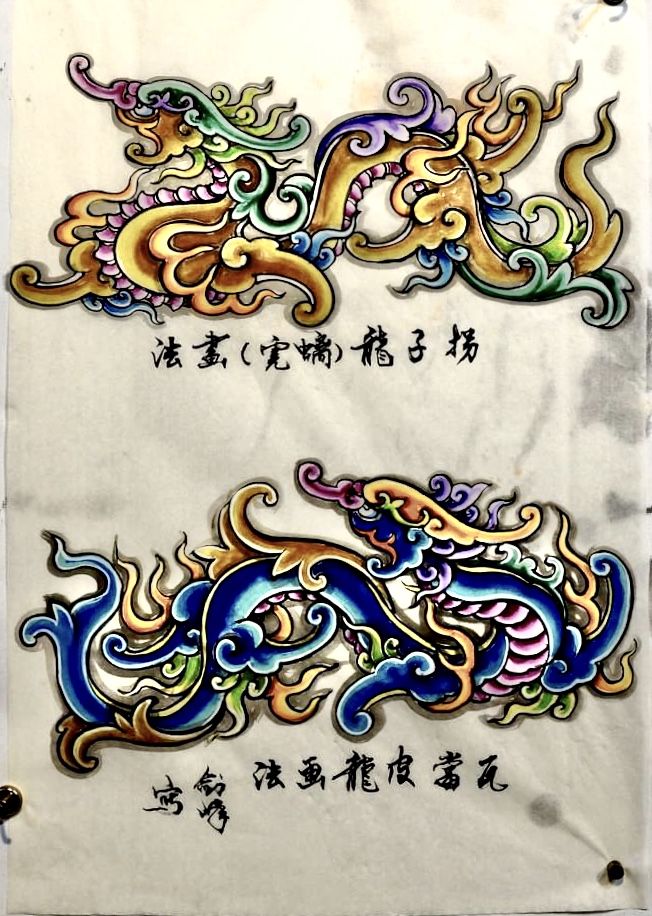 拐子龍(螭虎)畫法
瓦當皮龍画法
劍峰
寫